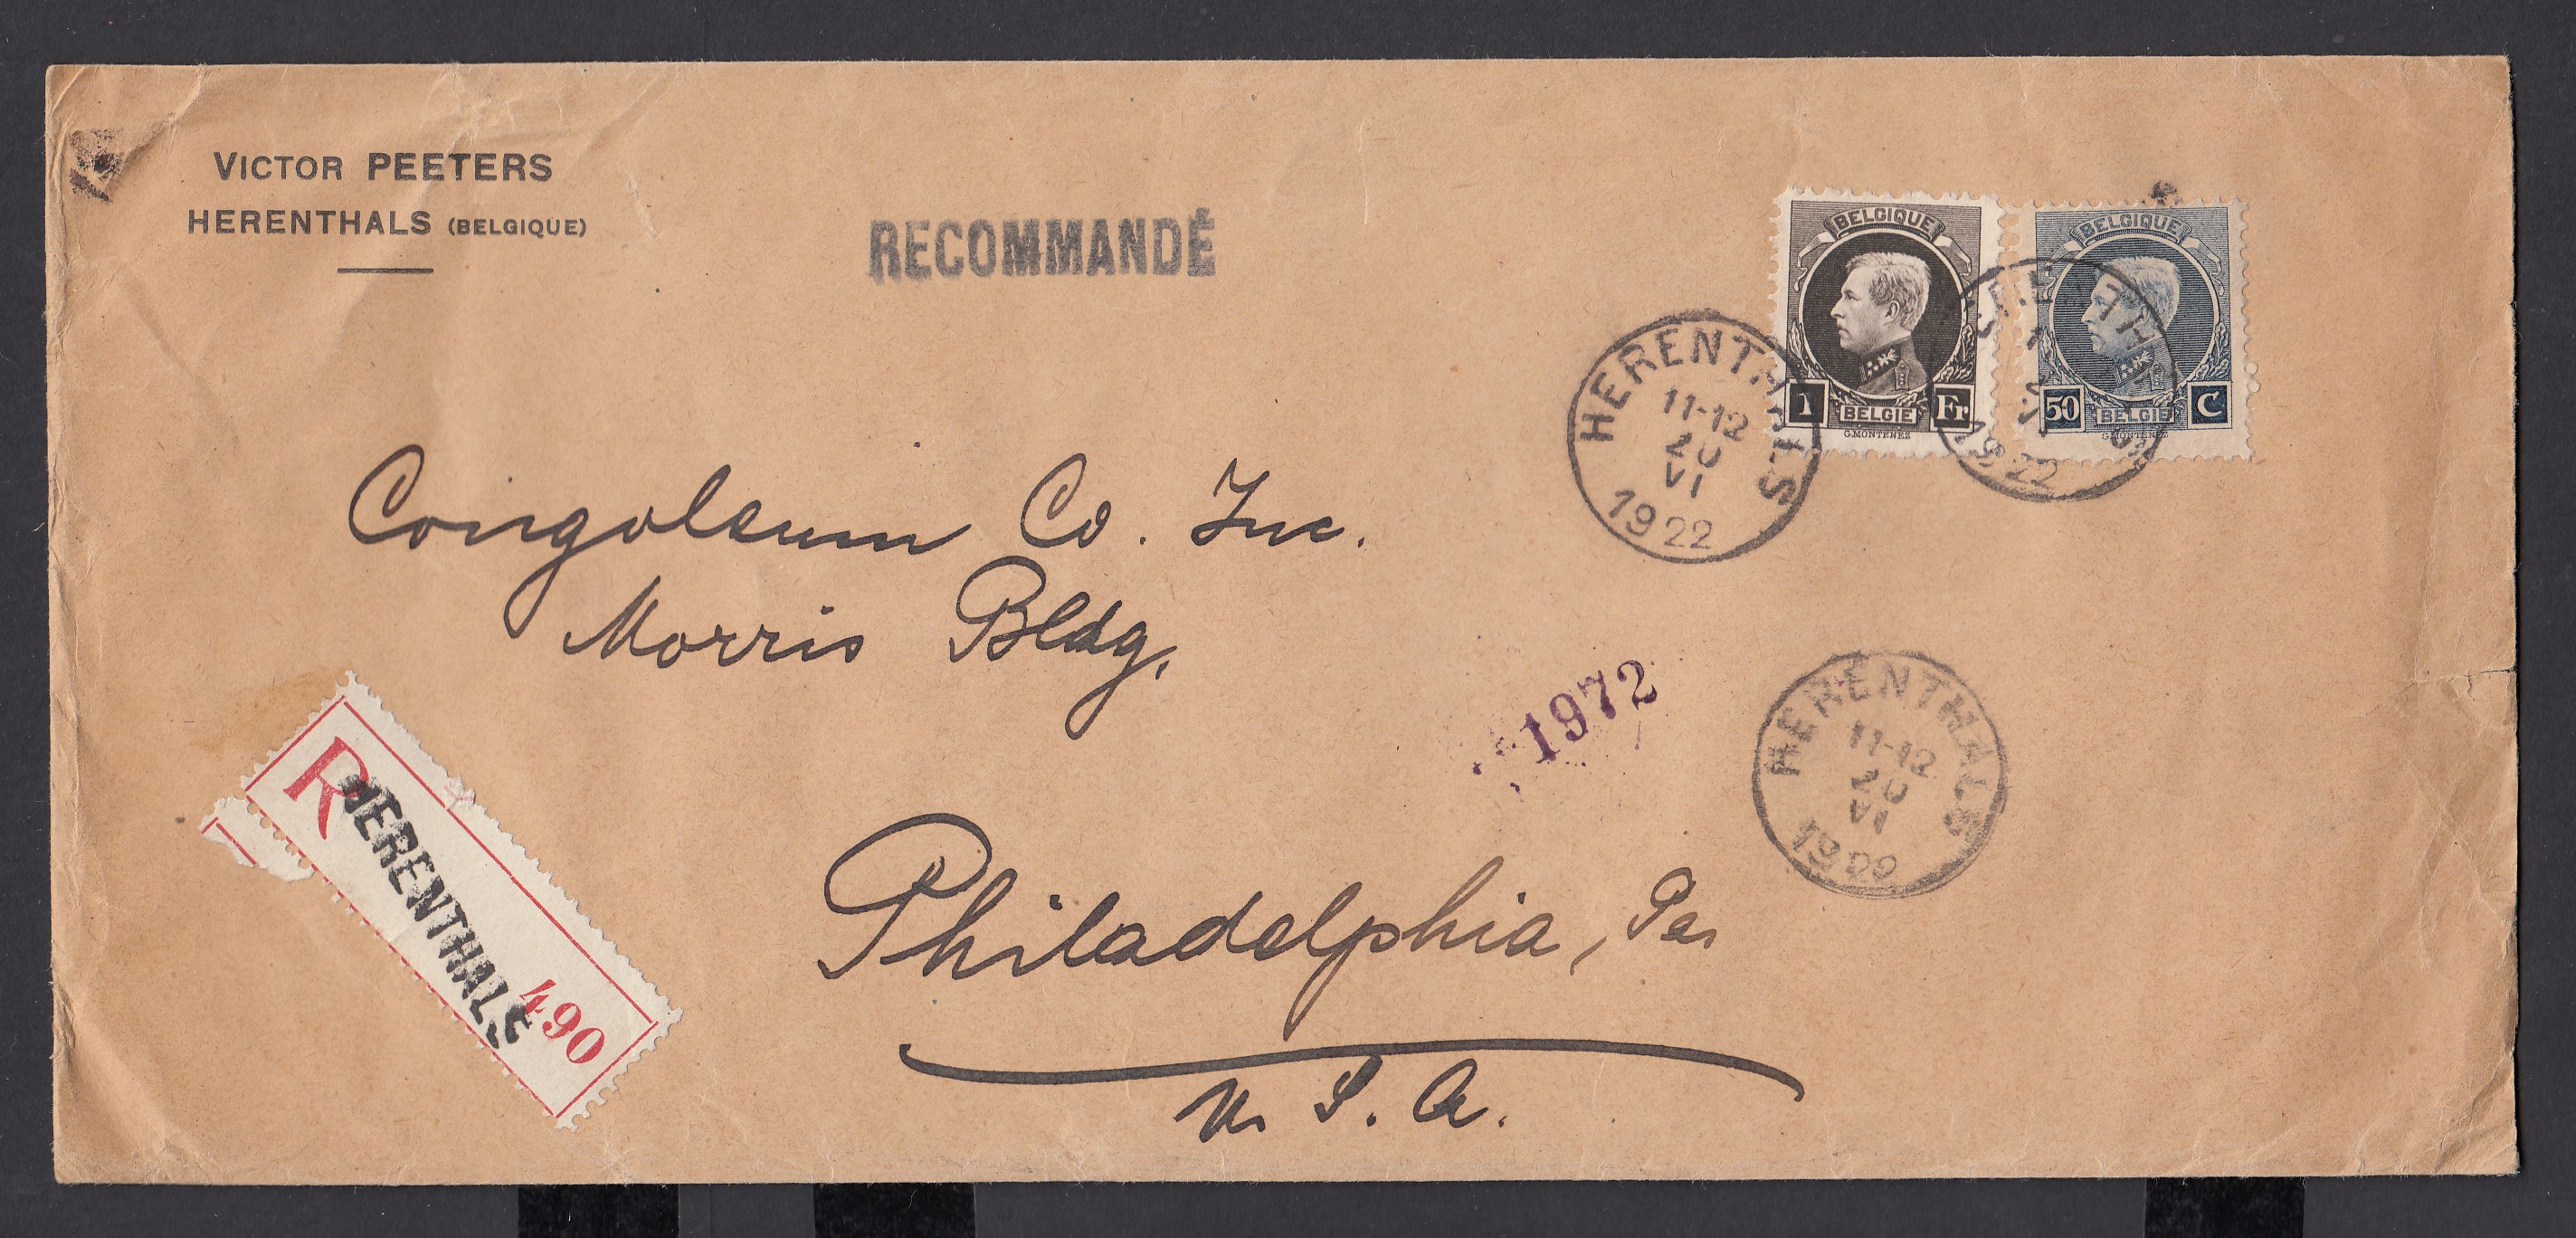 VICTOR PEETERS
HERENTHALS (BELGIQUE)
RECOMMANDÉ
BELGIQUE
1 BELGIE Fr
G.MONTENEZ
BELGIQUE
50 BELGIE C
G.MONTENEZ
HERENTHALS
11-12
20
VI
1922
1922
Congoleum Co. Inc.
Morris Bldg.
1972
HERENTHALS
11-12
20
VI
R
HERENTHALS
490
Philadelphia, Pa
U. S. A.